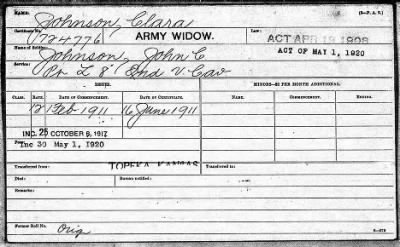 Name: Johnson, Clara (3-P. A. 2.)
Certificate No. 724776 ARMY WIDOW. Law: ACT APR 19 1908
Name of Soldier: Johnson, John C ACT OF MAY 1, 1920
Service: Pvt L 8" Ind V. Cav
ISSUES. MINORS—$2 PER MONTH ADDITIONAL.
CLASS. RATE. DATE OF COMMENCEMENT. DATE OF CERTIFICATE. NAME. DATE OF COMMENCEMENT. ENDING.
12 1 Feb 1911 16 June 1911
INC. 25 OCTOBER 6, 1917
Inc 30 May 1, 1920
Transferred from TOPEKA KANSAS Transferred to:
Died: Bureau notified:
Remarks:
Former Roll No. Orig